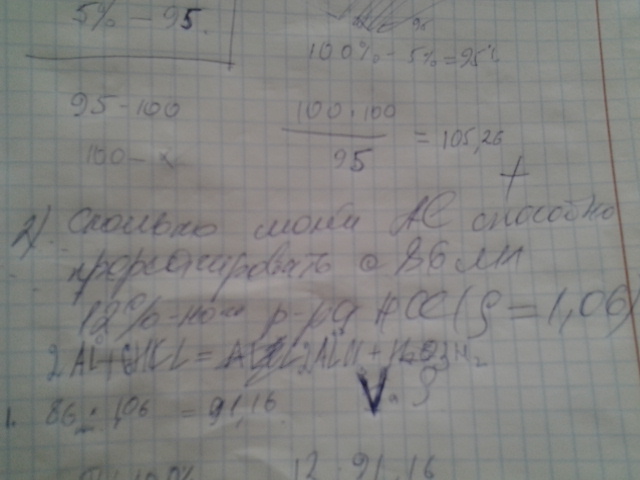 5% - 95.
100% - 5% = 95%
95 - 100
100 · 100
100 - x
95
= 105,26
2) Сколько моль Al способно
прореагировать с 86 мл
12%-ного р-ра HCl (ρ = 1,06)
V · ρ
1. 86 · 1,06 = 91,16
12 · 91,16